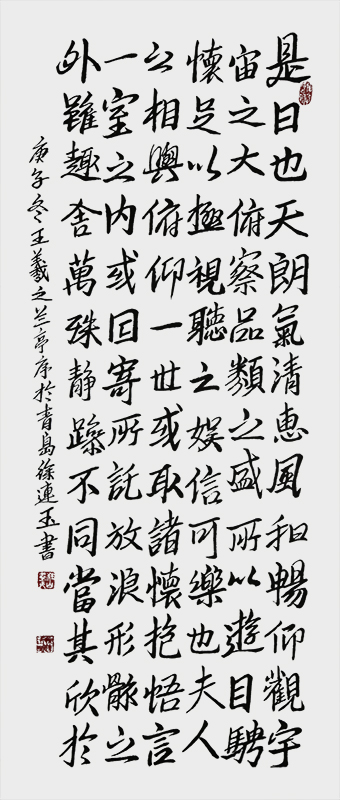 是日也天朗氣清惠風和暢仰觀宇
宙之大俯察品類之盛所以遊目騁
懷足以極視聽之娱信可樂也夫人
之相與俯仰一世或取諸懷抱悟言
一室之内或因寄所託放浪形骸之
外雖趣舍萬殊静躁不同當其欣於
庚子冬王羲之兰亭序於青島徐連玉書